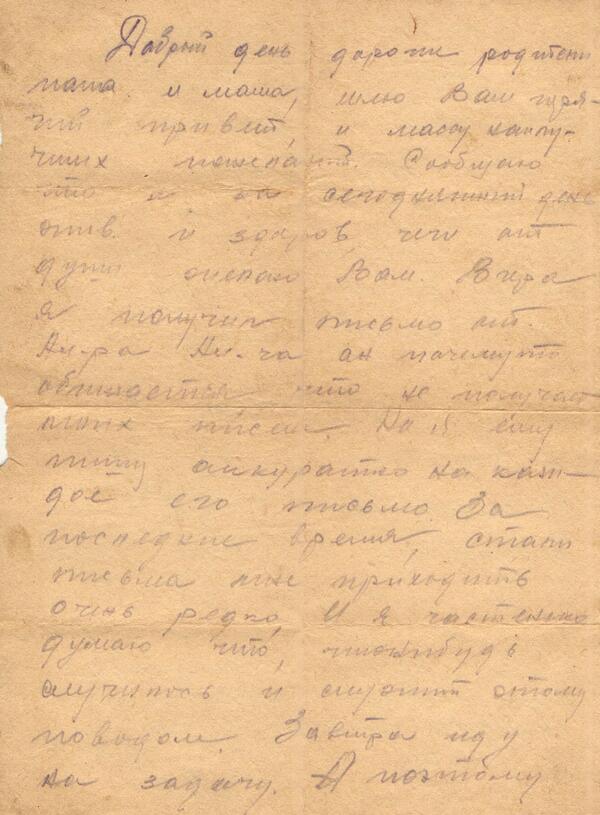 Добрый день дорогие родители
папа и мама, шлю Вам горя-
чий привет, и массу наилу-
чших пожеланий. Сообщаю
что я на сегодняшний день
жив и здоров, чего от
души желаю Вам. Вчера
я получил письмо от
он почему то
обижается что не получает
моих писем. Но я ему
пишу аккуратно на каж-
дое его письмо За
последние время, стали
письма мне приходить
очень редко, И я частенько
думаю что,
случилось и служит этому
поводом. Завтра иду
на задачу. А поэтому